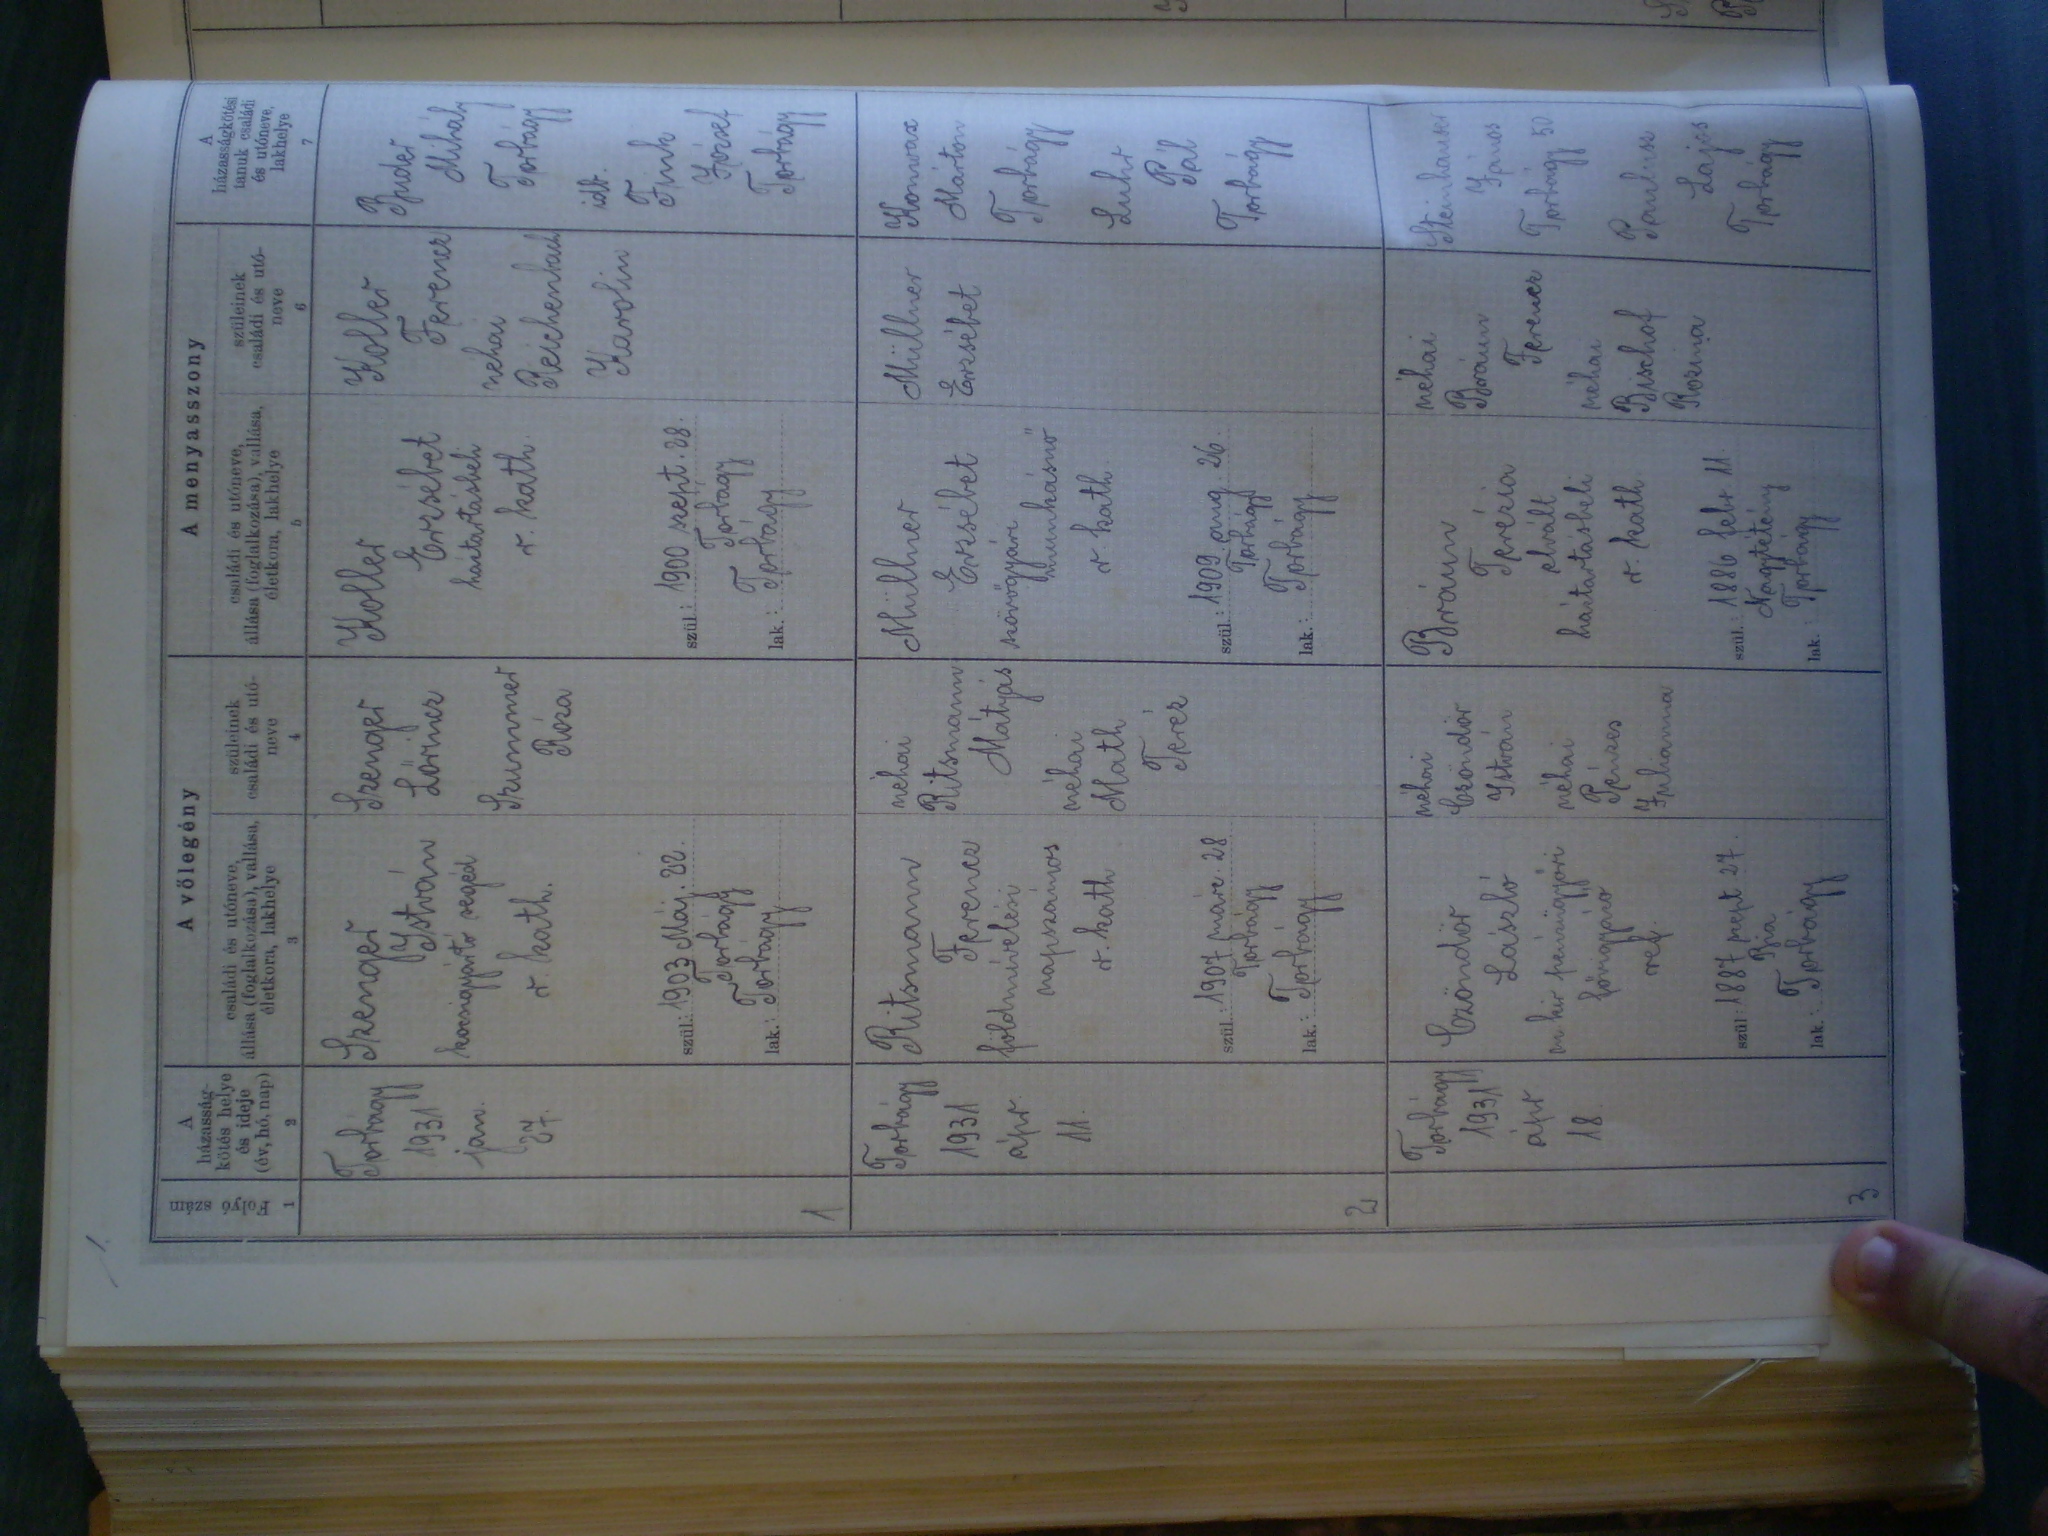 1.
A völegény
A menyasszony
Folyó szám
A
házasság-
kötés helye
és ideje
(év, hó, nap)
családi és utóneve,
állása (foglalkozása), vallása,
életkora, lakhelye
szüleinek
családi és utó-
neve
családi és utóneve,
állása (foglalkozása), vallása,
életkora, lakhelye
szüleinek
családi és utó-
neve
A
házasságkötési
tanuk családi
és utóneve,
lakhelye
1
2
3
4
5
6
7
1
Torbágy
1931
jan.
27.
Szenger
István
kocsigyártó segéd
r. kath.
szül.: 1903 Máj. 22.
Torbágy
lak.: Torbágy
Szenger
Lőrincz
Szummer
Róza
Koller
Erzsébet
háztartásbeli
r. kath.
szül.: 1900 szept. 28.
Torbágy
lak.: Torbágy
Koller
Ferencz
néhai
Reichenbach
Karolin
Buder
Mihály
Torbágy
idb.
Fink
József
Torbágy
2
Torbágy
1931
ápr.
11.
Ritsmann
Ferencz
földmívelési
napszámos
r. kath
szül.: 1907 márc. 28
Torbágy
lak.: Torbágy
néhai
Ritsmann
Mátyás
néhai
Math
Teréz
Müllner
Erzsébet
szövőgyári
munkásnő
r. kath.
szül.: 1909 aug. 26.
Torbágy
lak.: Torbágy
Müllner
Erzsébet
Márton
Torbágy
Luhr
Pál
Torbágy
3
Torbágy
1931
ápr
18.
Czöndör
László
m kir pénzügyőri
ref.
szül: 1887 szept 27.
Bia
lak.: Torbágy
néhai
Czöndör
István
néhai
Pénzes
Julianna
Braun
Terézia
elvált
háztartásbeli
r. kath.
szül.: 1886 febr 11.
Nagytétény
lak.: Torbágy
néhai
Braun
Ferencz
néhai
Bischof
Rozina
Steinhauser
János
Torbágy 50
Lajos
Torbágy